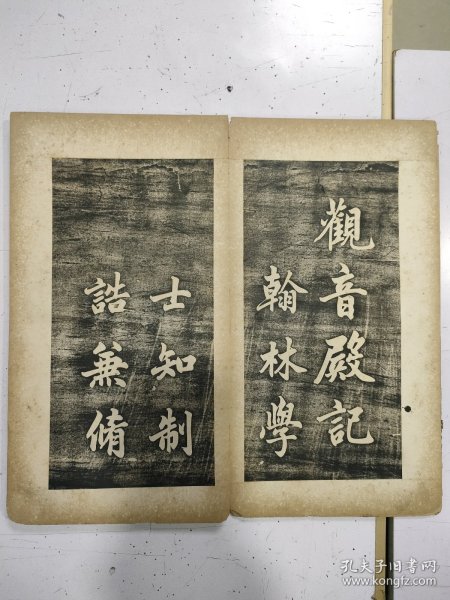 觀音殿記
翰林學
士知制
誥兼脩
孔夫子旧书网
www.kongfz.com